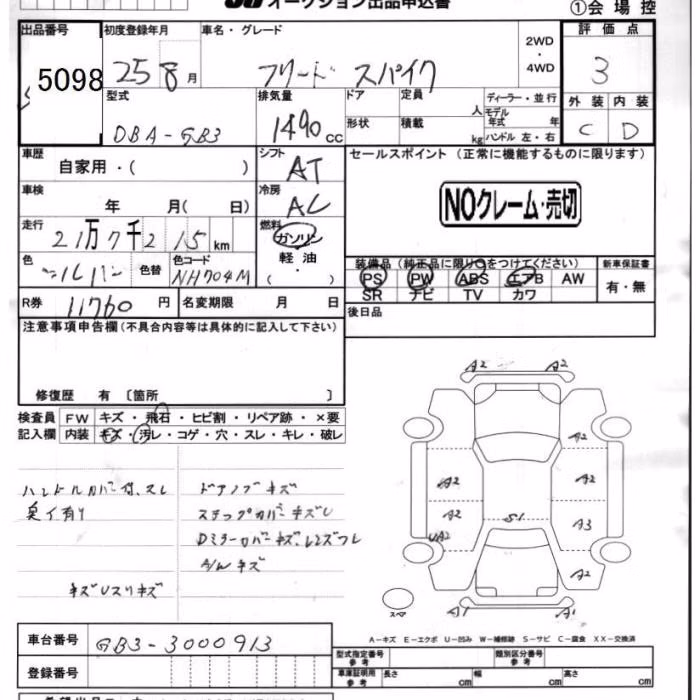 オークション出品申込書
①会場控
出品番号
5098
初度登録年月
25 8 月
車名・グレード
フリード スパイク
2WD
・
4WD
評価点
3
型式
DBA-GB3
排気量
1490 cc
ドア 定員 人
形状 積載 kg
ディーラー・並行
モデル年式 年
ハンドル 左・右
外装 内装
C D
車歴
自家用・( )
シフト
AT
セールスポイント (正常に機能するものに限ります)
NOクレーム・売切
車検
年 月( 日)
冷房
AC
走行
21万7千215 km
燃料
ガソリン
軽油・
( )
色
シルバー
色替
色コード
NH704M
装備品(純正品に限り○をつけてください)
PS PW ABS エアB AW
SR ナビ TV カワ
新車保証書
有・無
R券 11760 円
名変期限 月 日
後日品
注意事項申告欄(不具合内容等は具体的に記入して下さい)
修復歴 有 〔箇所 〕
検査員 FW キズ・飛石・ヒビ割・リペア跡・×要
記入欄 内装 キズ・汚レ・コゲ・穴・スレ・キレ・破レ
ハンドルカバー付、スレ
臭イ有リ
キズUスリキズ
ドアノブキズ
ステップカバーキズU
Dミラーカバーキズ、レンズワレ
A/Wキズ
A2 A2
A2
A2 A2
A2 S1 A3
UA2
A2
A1 A1
スペア
A-キズ E-エクボ U-凹み W-補修跡 S-サビ C-腐食 XX-交換済
車台番号 GB3-3000913
登録番号
型式指定番号 参考
類別区分番号 参考
車庫証明用 参考 長さ cm 幅 cm 高さ cm